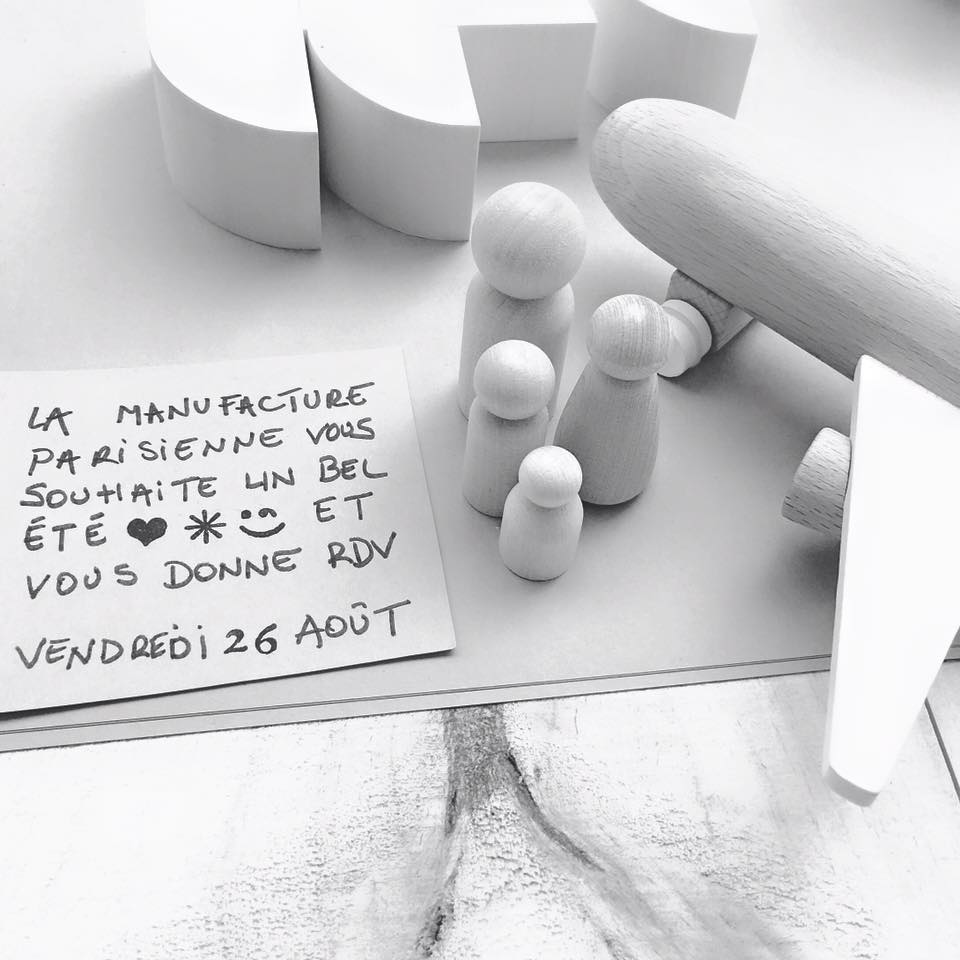 LA MANUFACTURE
PARISIENNE VOUS
SOUHAITE UN BEL
ÉTÉ ♥ ✳ ET
VOUS DONNE RDV
VENDREDI 26 AOÛT